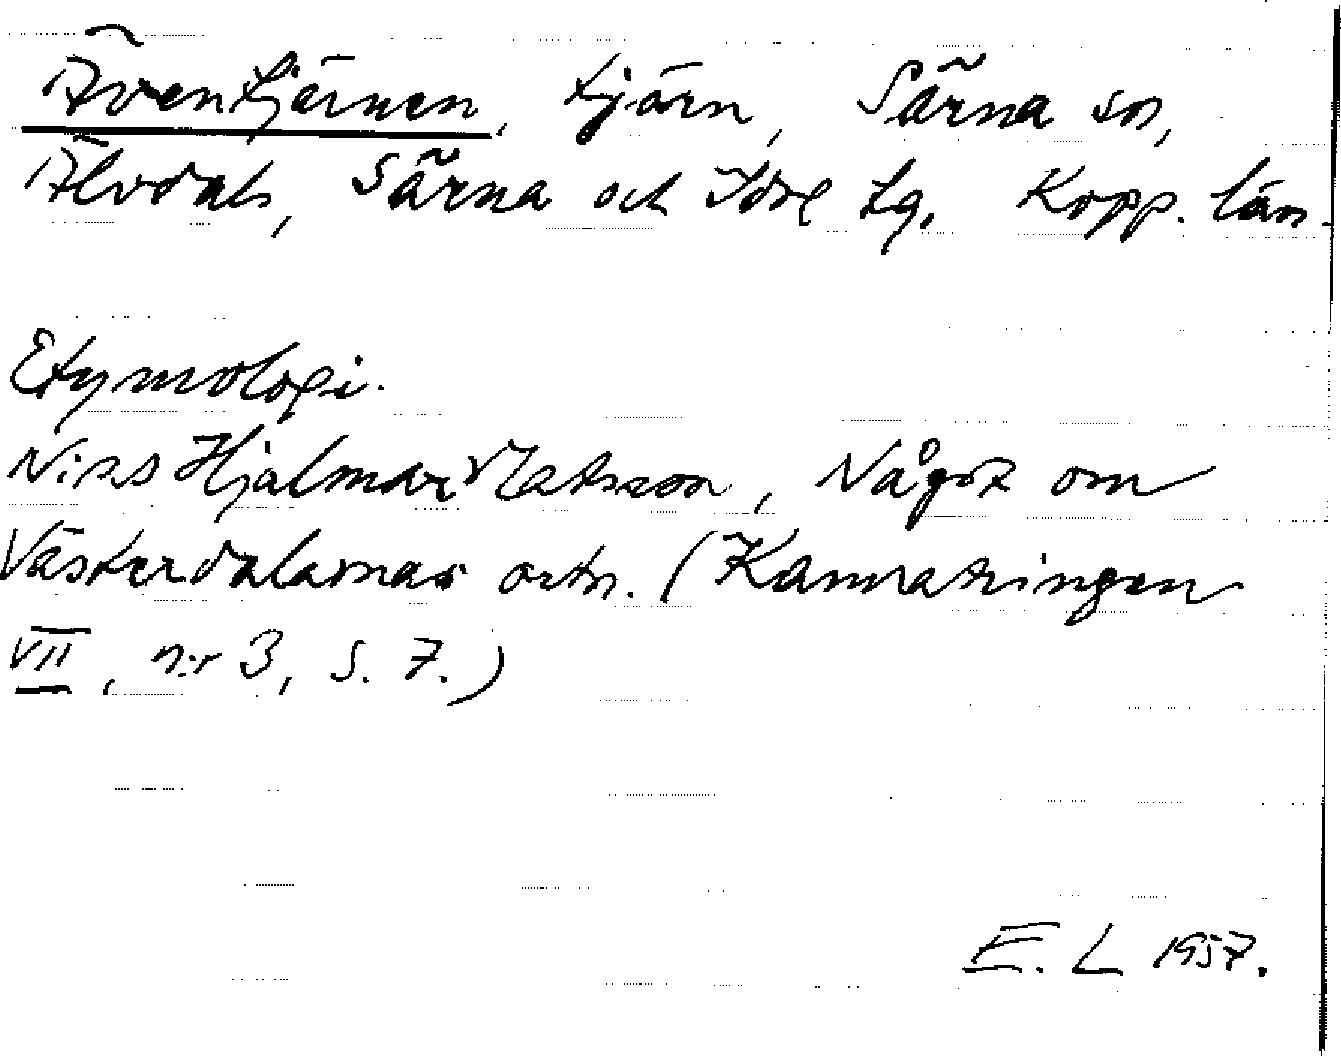 Äventjärnen, tjärn, Särna sn,
Älvdals, Särna och Idre tg. Kopp. län.
Etymologi.
Niss Hjalmar Matsson, Något om
Västerdalarnas ortn. (Kamratringen
VII, nr 3, s. 7.)
E. L 1957.